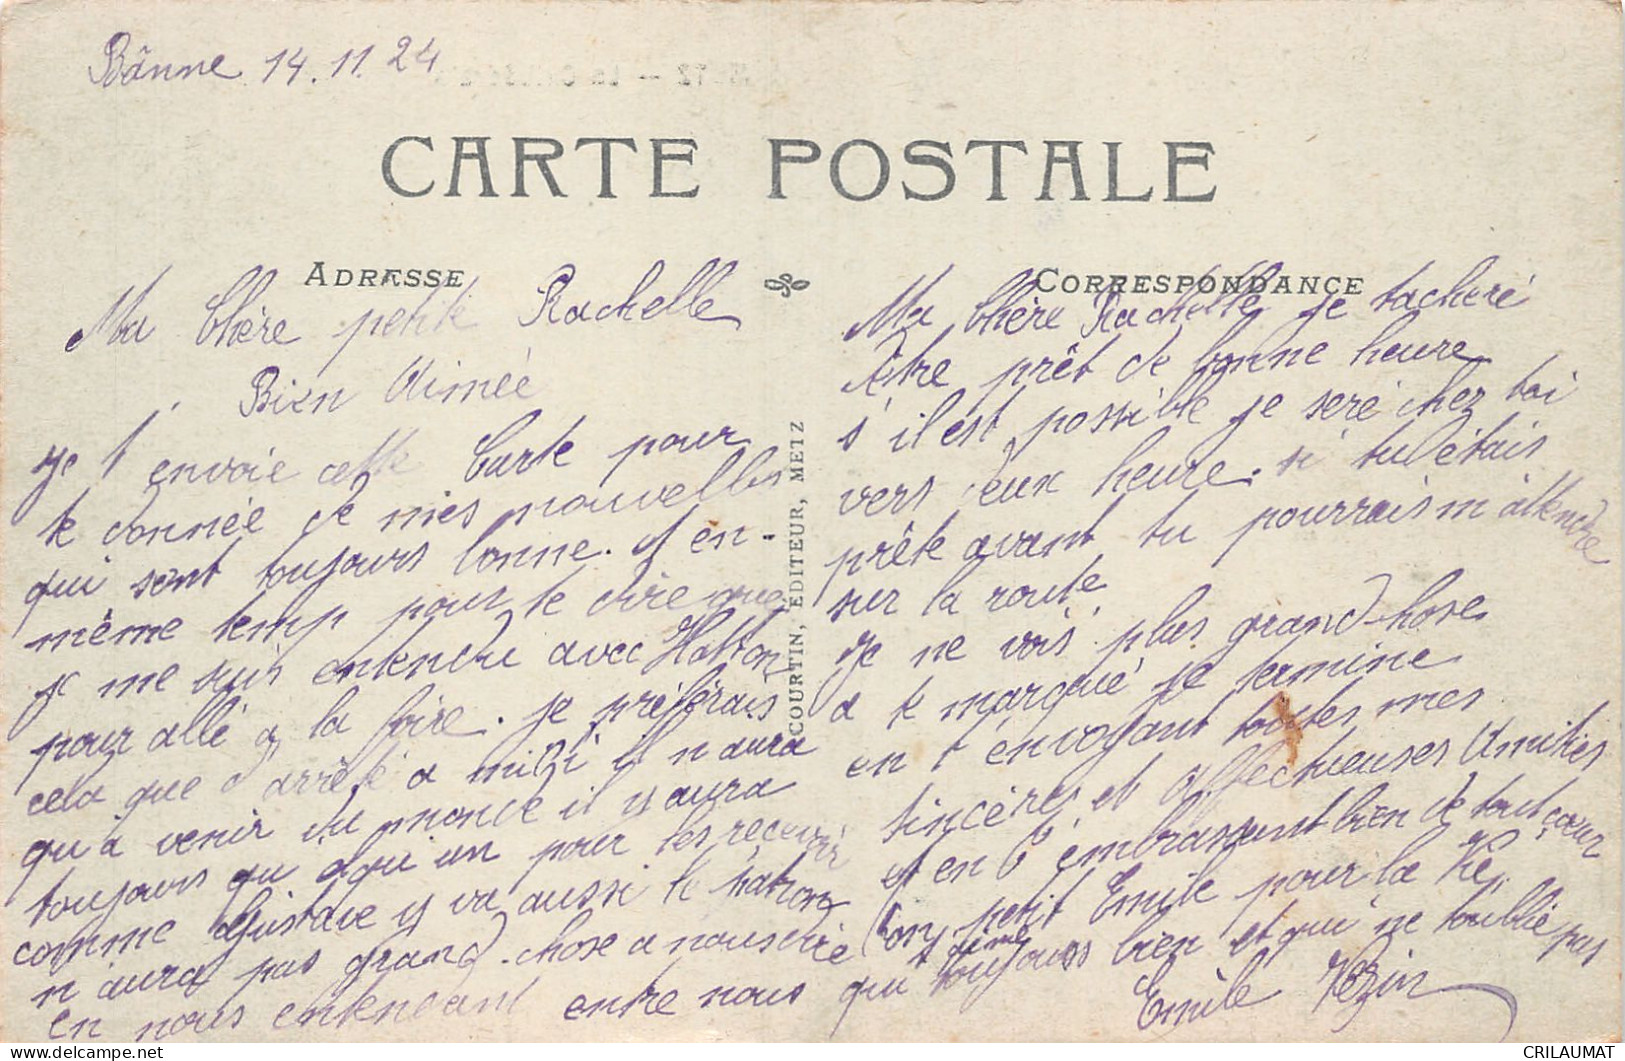 Bânne 14.11.24
CARTE POSTALE
ADRESSE
Ma Chère petite Rachelle
Bien Aimée
Je t'envoie cette Carte pour
te donnée de mes nouvelles
qui sont toujours bonne. et en-
même temp pour te dire que
je me suis entendu avec Hatton
pour allé a la foire. je préférais
cela que d'arrêté a midi il n'aura
qu'a venir du monde il y aura
toujours qu'un pour les recevoir
comme Gustave y va aussi le patron
n'aura pas grand-chose a nous dire
en nous entendant entre nous
COURTIN, ÉDITEUR, METZ
CORRESPONDANCE
Ma Chère Rachelle je tacheré
être prêt de bonne heure
s'il est possible je seré chez toi
vers deux heure. si tu étais
prête avant tu pourrais m'attendre
sur la route
Je ne vois plus grand-chose
a te marqué je termine
en t'envoyant toutes mes
sincères et affectueuses Amitiés
et en t'embrassant bien de tout cœur
Ton petit Emile pour la Vie
qui t'aime toujours bien et qui ne t'oublie pas
Emile Vezin
CRILAUMAT